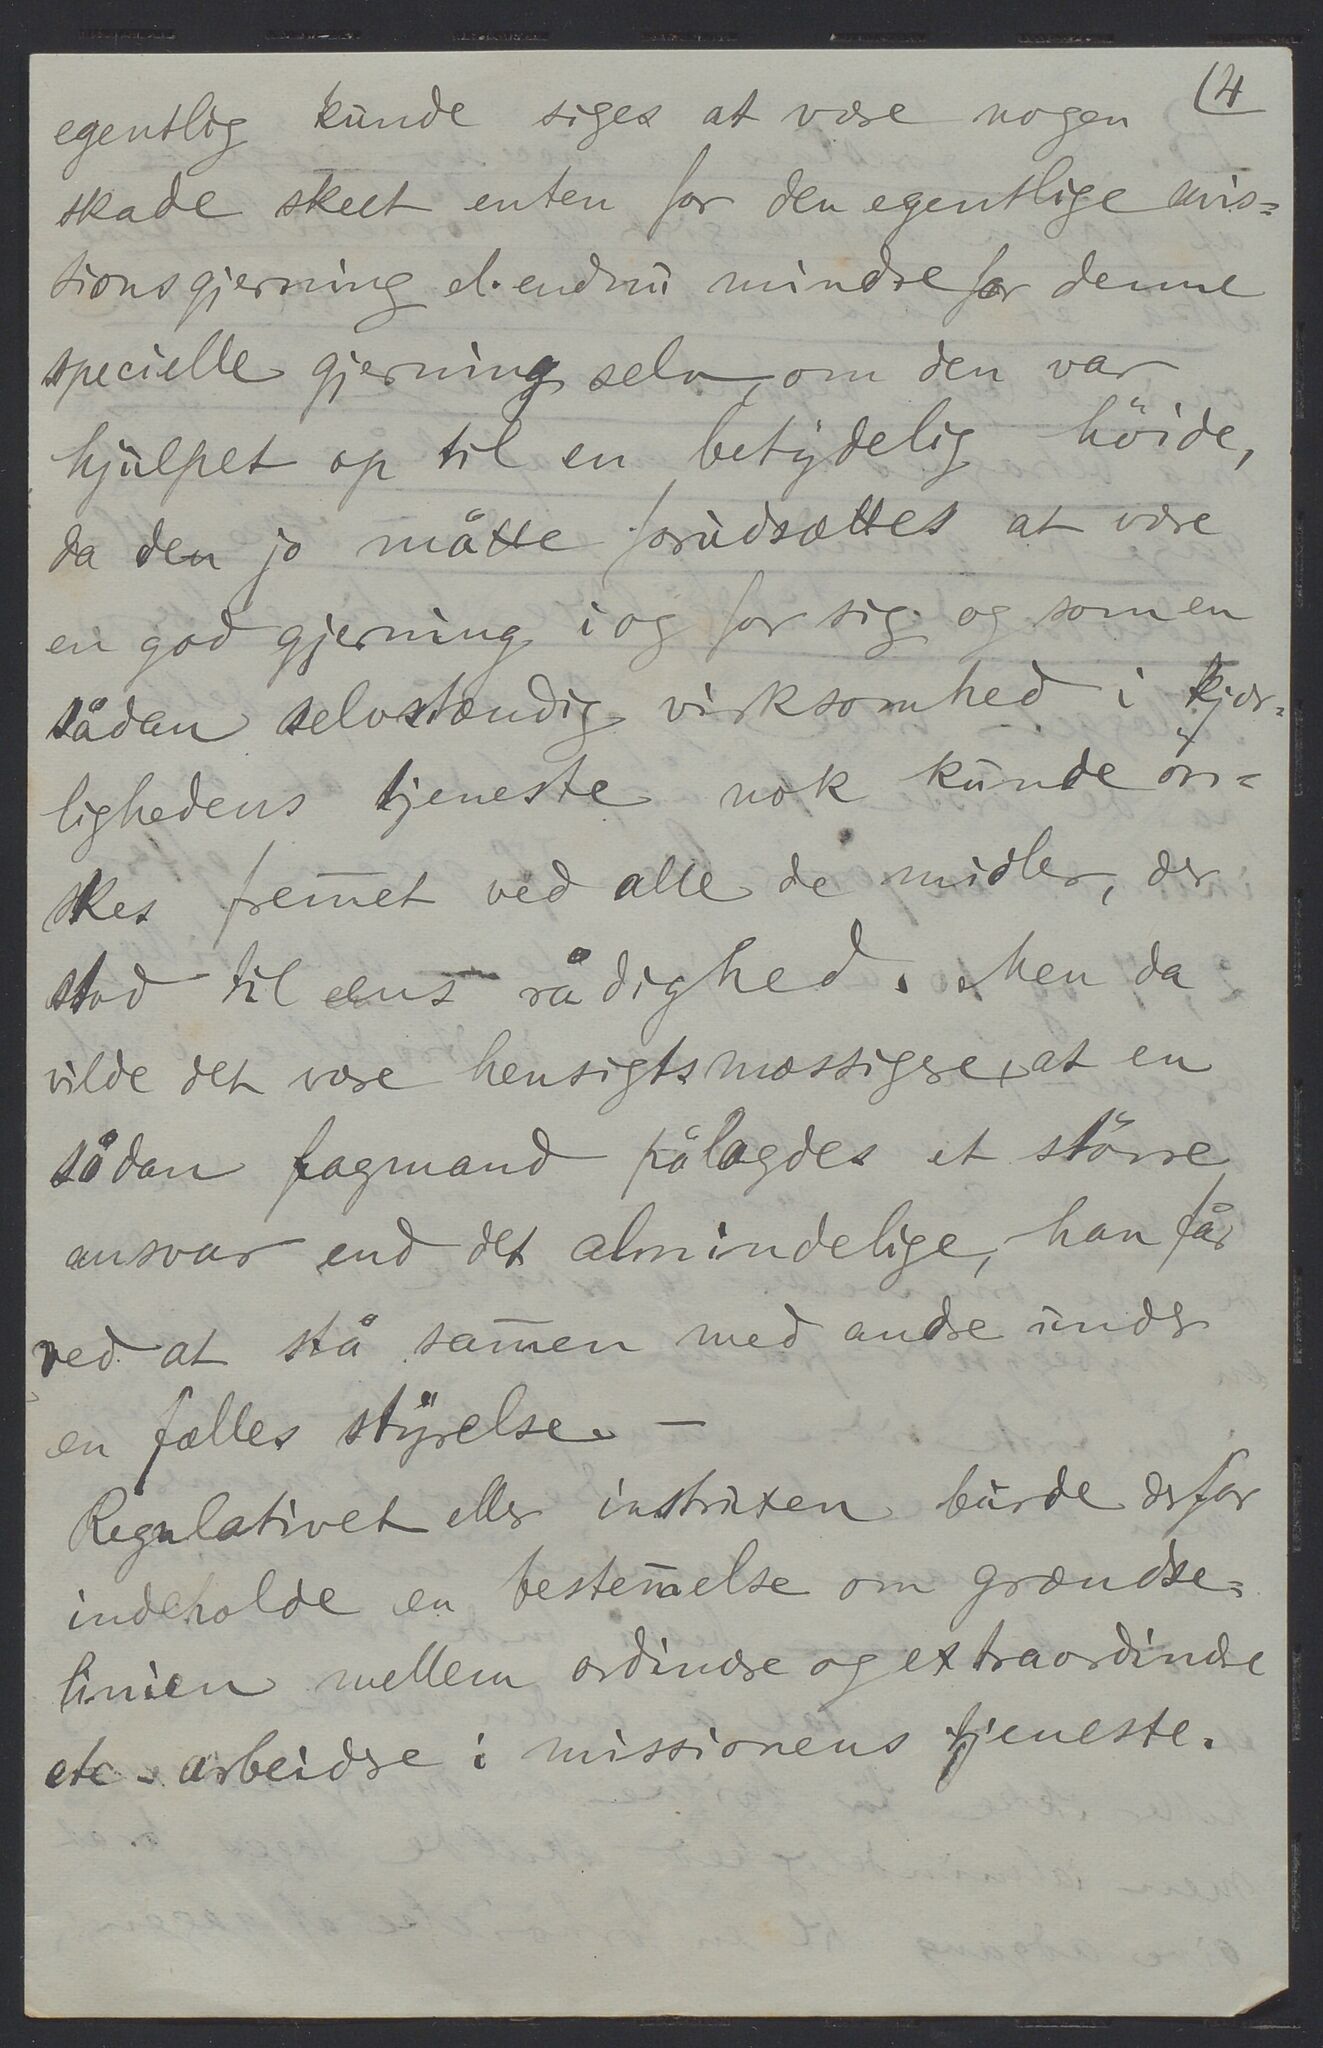 (4
egentlig kunde siges at være nogen
skade skeet enten for den egentlige mis=
sionsgjerning el. endnu mindre for denne
specielle gjerning selv, om den var
hjulpet op til en betydelig höide,
da den jo måtte forudsættes at være
en god gjerning i og for sig og som en
sådan selvstændig virksomhed i kjær=
lighedens tjeneste nok kunde ön=
skes fremmet ved alle de midler, der
stod til dens rådighed. Men da
vilde det være hensigtsmæssigere, at en
sådan fagmand pålagdes et större
ansvar end det almindelige, han får
ved at stå sammen med andre under
en fælles styrelse. —
Regulativet eller instruxen burde derfor
indeholde en bestemmelse om grændse=
linien mellem ordinære og extraordinære
etc. arbeidere i missionens tjeneste.